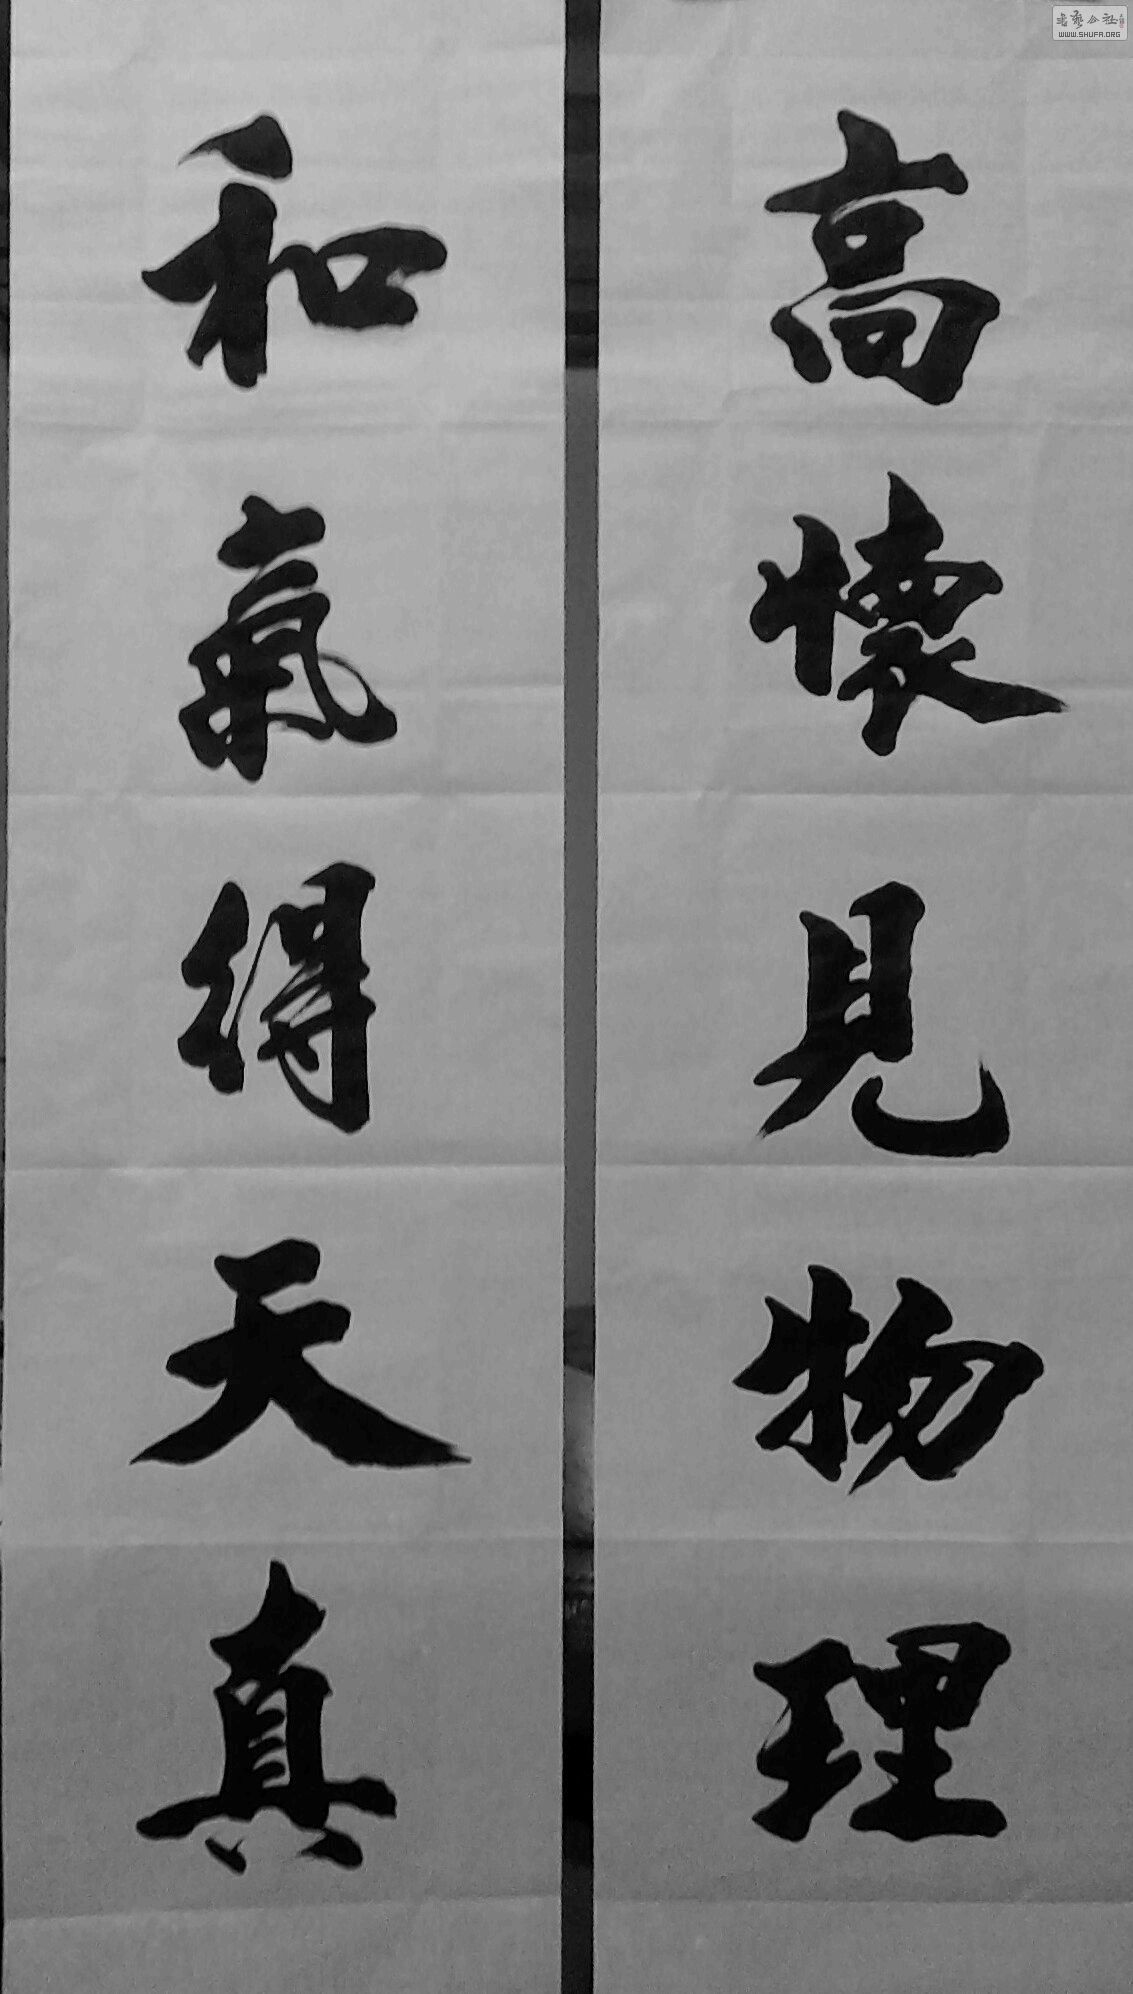 高懷見物理
和氣得天真
書藝公社
WWW.SHUFA.ORG